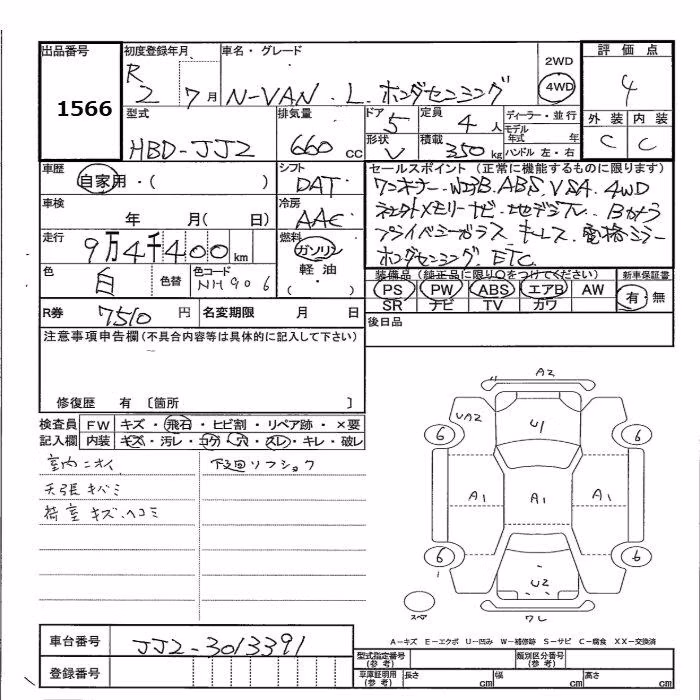 出品番号 初度登録年月 車名・グレード 評価点
1566 R2 7月 N-VAN . L. ホンダセンシング 2WD 4WD 4
型式 排気量 ドア 定員 ディーラー・並行 外装 内装
HBD-JJ2 660cc 5 4人 モデル年式 年 C C
形状 積載 ハンドル 左・右
V 350kg
車歴 シフト セールスポイント (正常に機能するものに限ります)
自家用・( ) DAT ワンオーナー. WエアB. ABS. VSA. 4WD
車検 冷房 ナビ. 地デジTV. Bカメラ
年 月( 日) AAC プライバシーガラス キーレス. 電格ミラー
走行 燃料 ホンダセンシング. ETC
9万4千400km ガソリン
軽油
( ・ )
色 色替 色コード 装備品 (純正品に限り○をつけてください) 新車保証書
白 NH906 PS PW ABS エアB AW 有・無
SR ナビ TV カワ
R券 7510円 名変期限 月 日 後日品
注意事項申告欄(不具合内容等は具体的に記入して下さい)
修復歴 有 〔箇所 〕
検査員 FW キズ・飛石・ヒビ割・リペア跡・×要
記入欄 内装 キズ・汚レ・コゲ・穴・スレ・キレ・破レ
室内ニオイ 下回リフショク
天張キバミ
荷室キズ.ヘコミ
A2
UA2 U1
6 6
A1 A1 A1
6 6
U2
スペア ワレ
A-キズ E-エクボ U-凹み W-補修跡 S-サビ C-腐食 XX-交換済
車台番号 JJ2-3013391
型式指定番号(参考) 類別区分番号(参考)
登録番号
車庫証明用(参考) 長さ cm 幅 cm 高さ cm